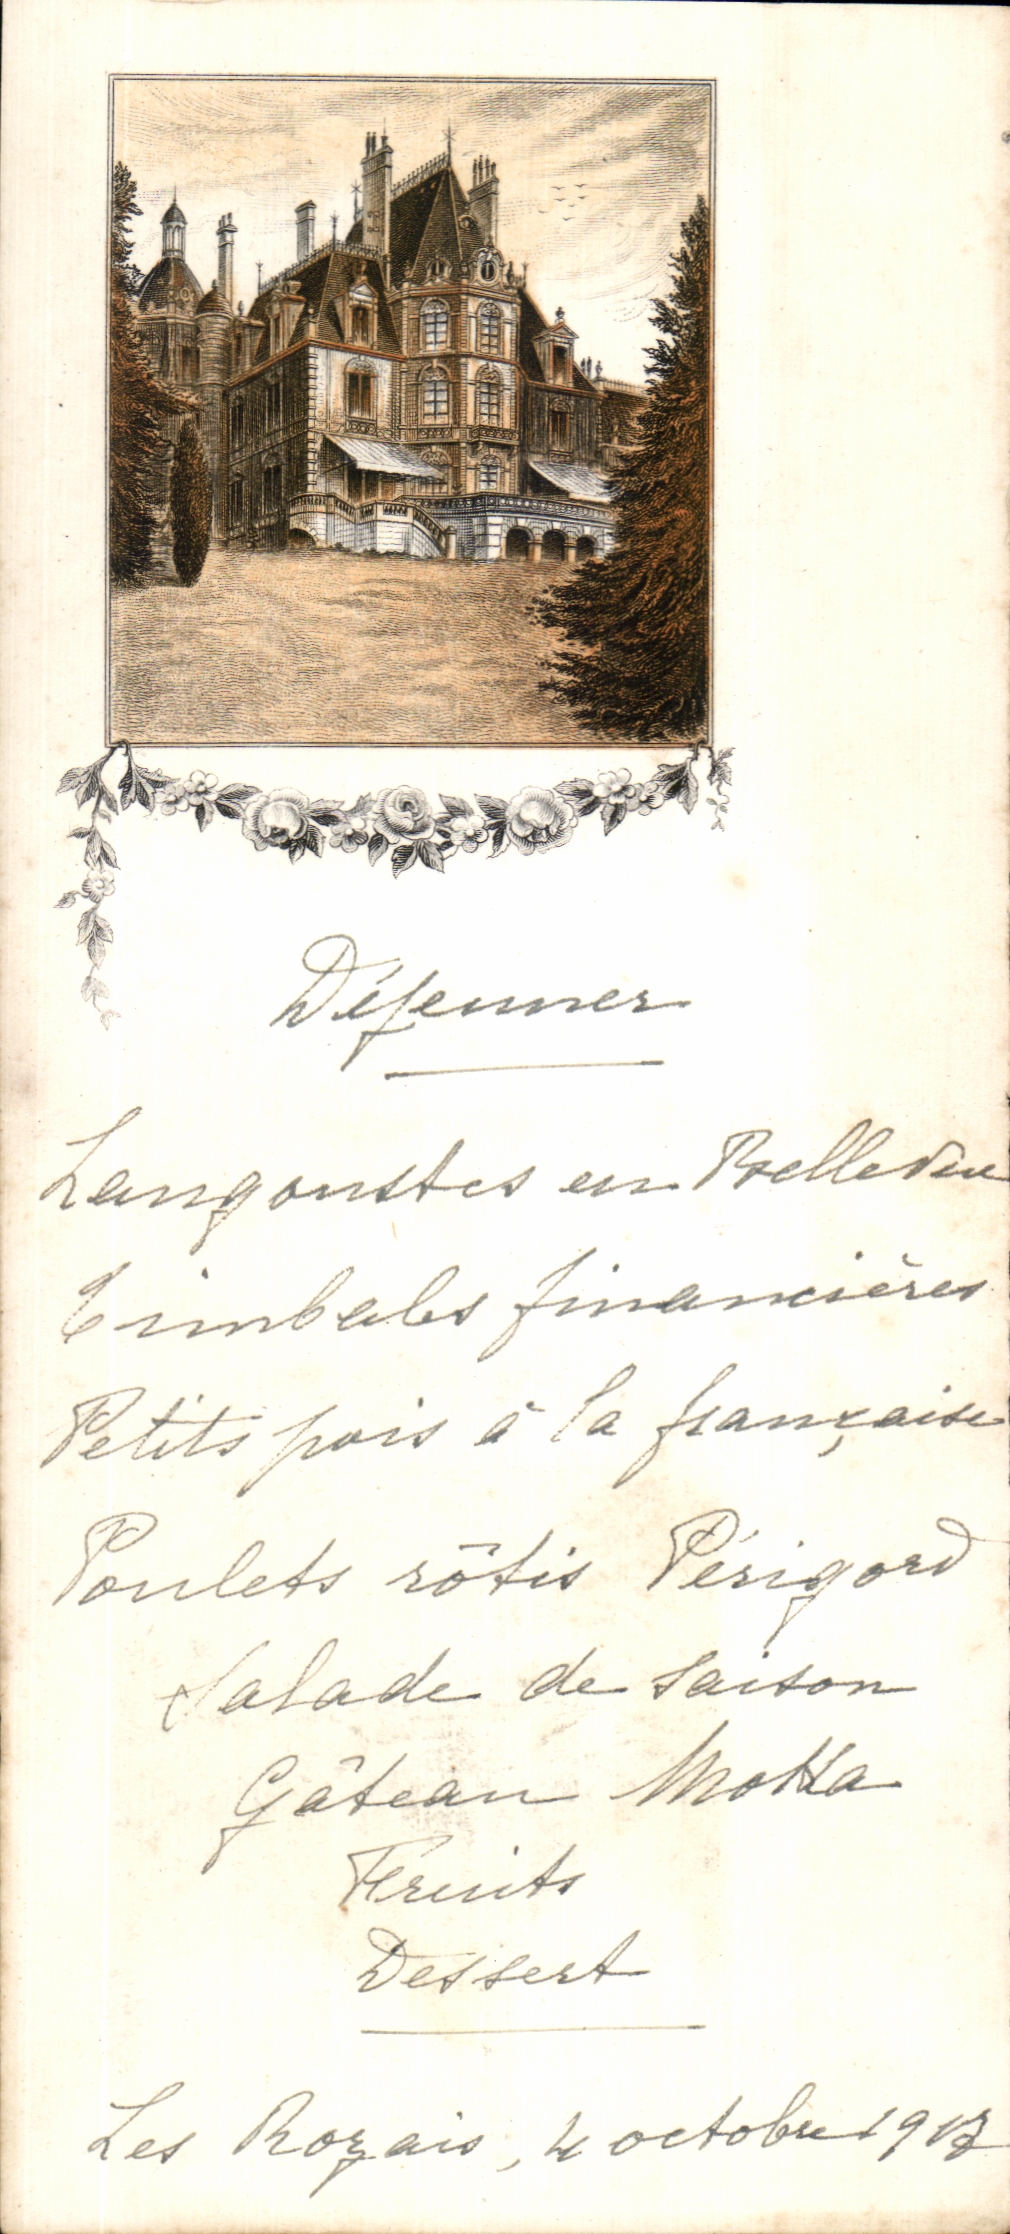 Déjeuner
Langoustes en Bellevue
Timbales financières
Petits pois à la française
Poulets rôtis Périgord
Salade de saison
Gâteau Motta
Fruits
Dessert
Les Rozais, 4 octobre